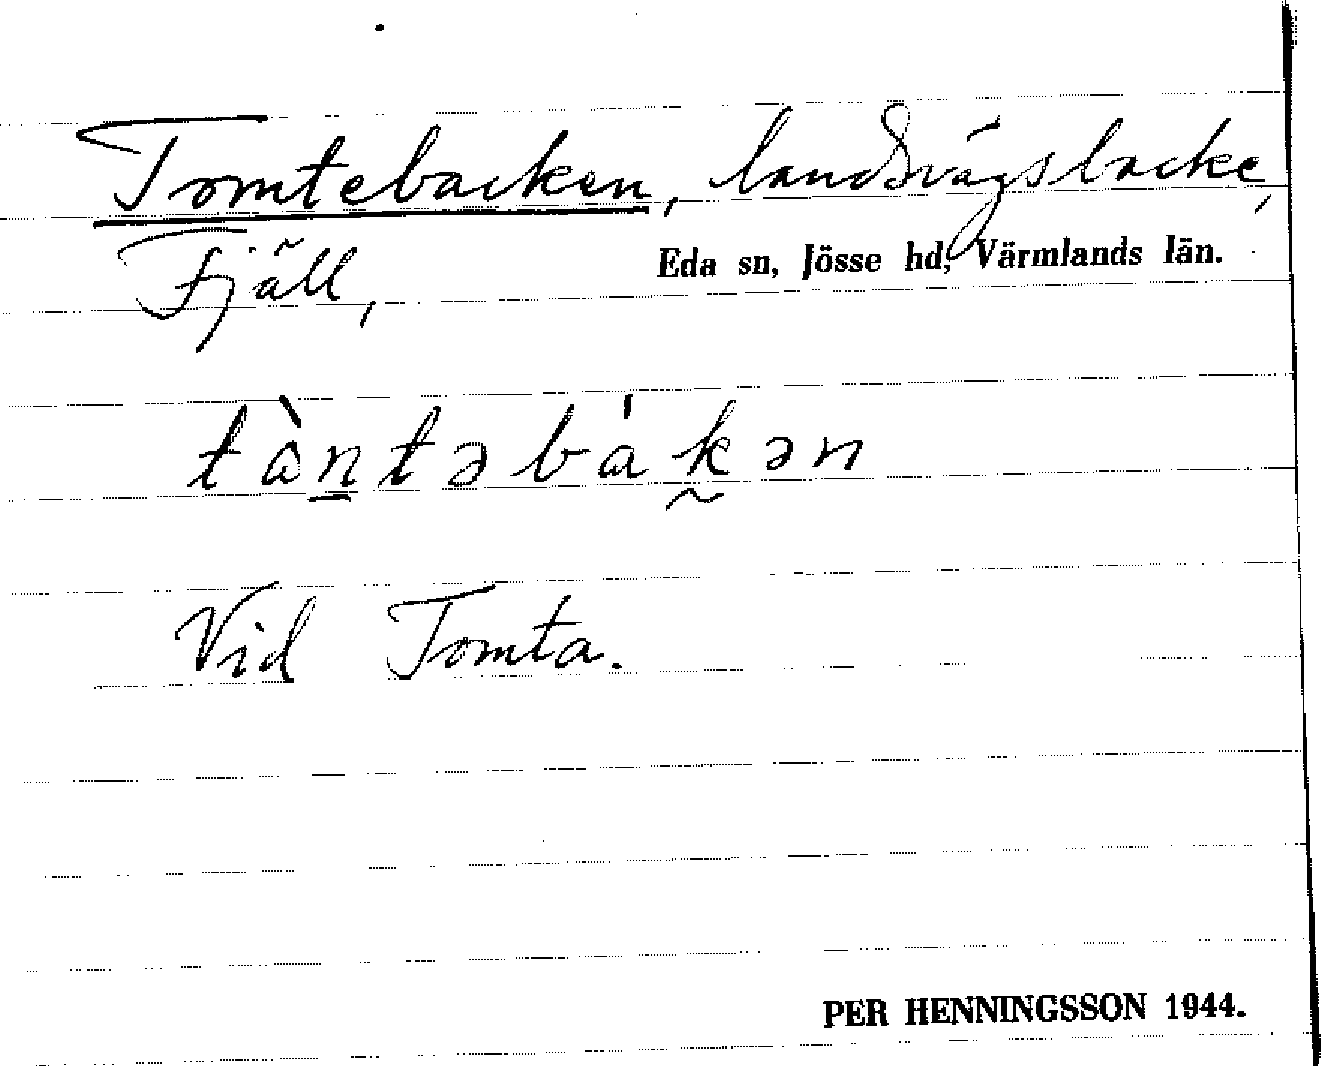 Tomtebacken, landsvägsbacke,
Fjäll, Eda sn, Jösse hd, Värmlands län.
tàn̠təbákə̰n
Vid Tomta.
PER HENNINGSSON 1944.